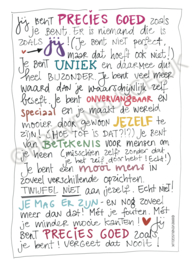 jij bent PRECIES GOED zoals
je bent. Er is niemand die is
zoals jij! (Je bent niet perfect,
maar dat hoeft ook niet!)
Je bent UNIEK en daarmee dus
heel BIJZONDER. Je bent veel meer
waard dan je waarschijnlijk zelf
beseft. Je bent ONVERVANGBAAR en
speciaal en je maakt de wereld
mooier door gewoon JEZELF te
ZIJN! (HOE TOF IS DAT?!?) Je bent
van BETEKENIS voor mensen om
je heen (misschien zelfs zonder dat
je het zelf door hebt! Echt!)
Je bent een mooi mens in
zoveel verschillende opzichten.
TWIJFEL NIET aan jezelf. Echt niet!
JE MAG ER ZIJN - en nog zoveel
meer dan dat! Mét je fouten. Mét
je minder mooie kanten! Jij
bent PRECIES GOED zoals
je bent! Vergeet dat nooit.